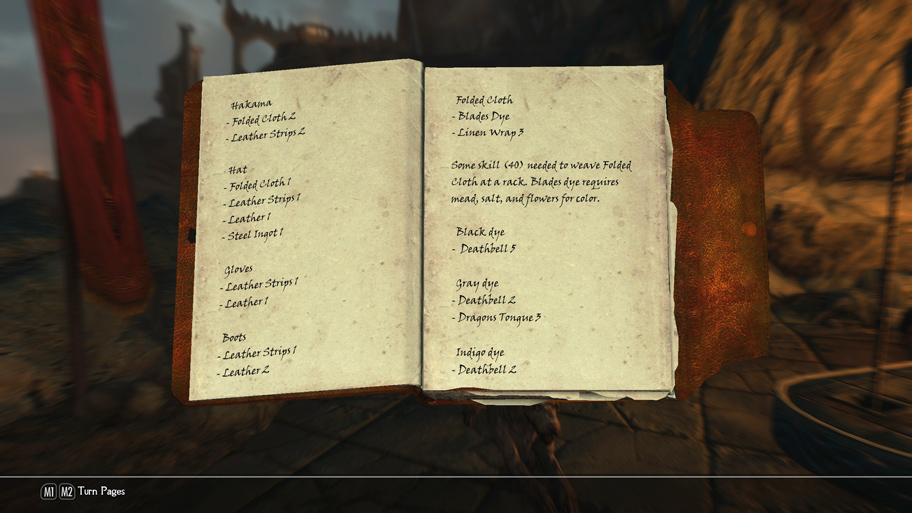 Hakama
- Folded Cloth 2
- Leather Strips 2
Hat
- Folded Cloth 1
- Leather Strips 1
- Leather 1
- Steel Ingot 1
Gloves
- Leather Strips 1
- Leather 1
Boots
- Leather Strips 1
- Leather 2
Folded Cloth
- Blades Dye
- Linen Wrap 3
Some skill (40) needed to weave Folded
Cloth at a rack. Blades dye requires
mead, salt, and flowers for color.
Black dye
- Deathbell 5
Gray dye
- Deathbell 2
- Dragons Tongue 3
Indigo dye
- Deathbell 2
M1 M2 Turn Pages